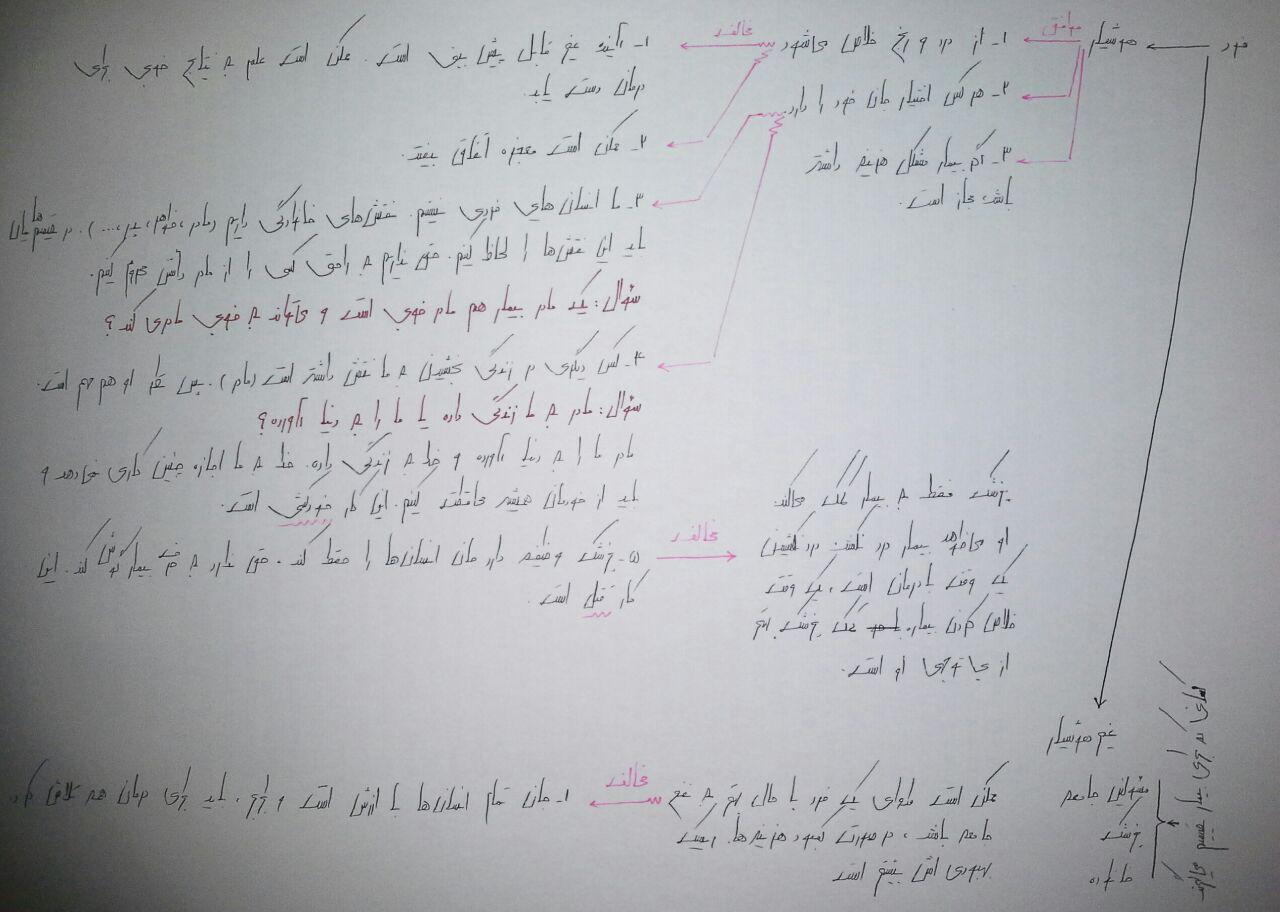 فرد
هوشیار
موافق
۱- از درد و رنج خلاص می‌شود
۲- هر کس اختیار جان خود را دارد.
۳- اگر بیمار مشکل هزینه داشته
باشد مجاز است.
مخالف
۱- آینده غیر قابل پیش بینی است. ممکن است علم به نتایج خوبی برای
درمان دست یابد.
۲- ممکن است معجزه اتفاق بیفتد.
۳- ما انسان‌های فردی نیستیم. نقش‌های خانوادگی داریم (مادر، خواهر، پدر، ...). در تصمیم‌هایمان
باید این نقش‌ها را لحاظ کنیم. حق نداریم به راحتی کسی را از مادر داشتن محروم کنیم.
سؤال: یک مادر بیمار هم مادر خوبی است و می‌تواند به خوبی مادری کند؟
۴- کس دیگری در زندگی بخشیدن به ما نقش داشته است (مادر). پس نظر او هم مهم است.
سؤال: مادر به ما زندگی داده یا ما را به دنیا آورده؟
مادر ما را به دنیا آورده و خدا به زندگی داده. خدا به ما اجازه چنین کاری نمی‌دهد و
باید از خودمان همیشه محافظت کنیم. این کار خودکشی است.
۵- پزشک وظیفه دارد جان انسان‌ها را حفظ کند. حق ندارد به حرف بیمار گوش کند. این
کار قتل است.
مخالف
پزشک فقط به بیمار کمک می‌کند.
او می‌خواهد بیمار درد نکشد. درد نکشیدن
یک وقت با درمان است، یک وقت
خلاص کردن بیمار. کمک پزشک بهتر
از بی توجهی او است.
غیر هوشیار
مسئولین جامعه
پزشک
خانواده
کسانی که برای بیمار تصمیم می‌گیرند
ممکن است مداوای یک فرد با حال بهتر به نفع
جامعه باشد، در صورت کمبود هزینه‌ها. ریسک
بهبودی اش بیشتر است
مخالف
۱- جان تمام انسان‌ها با ارزش است و برابر. باید برای درمان همه تلاش کرد.